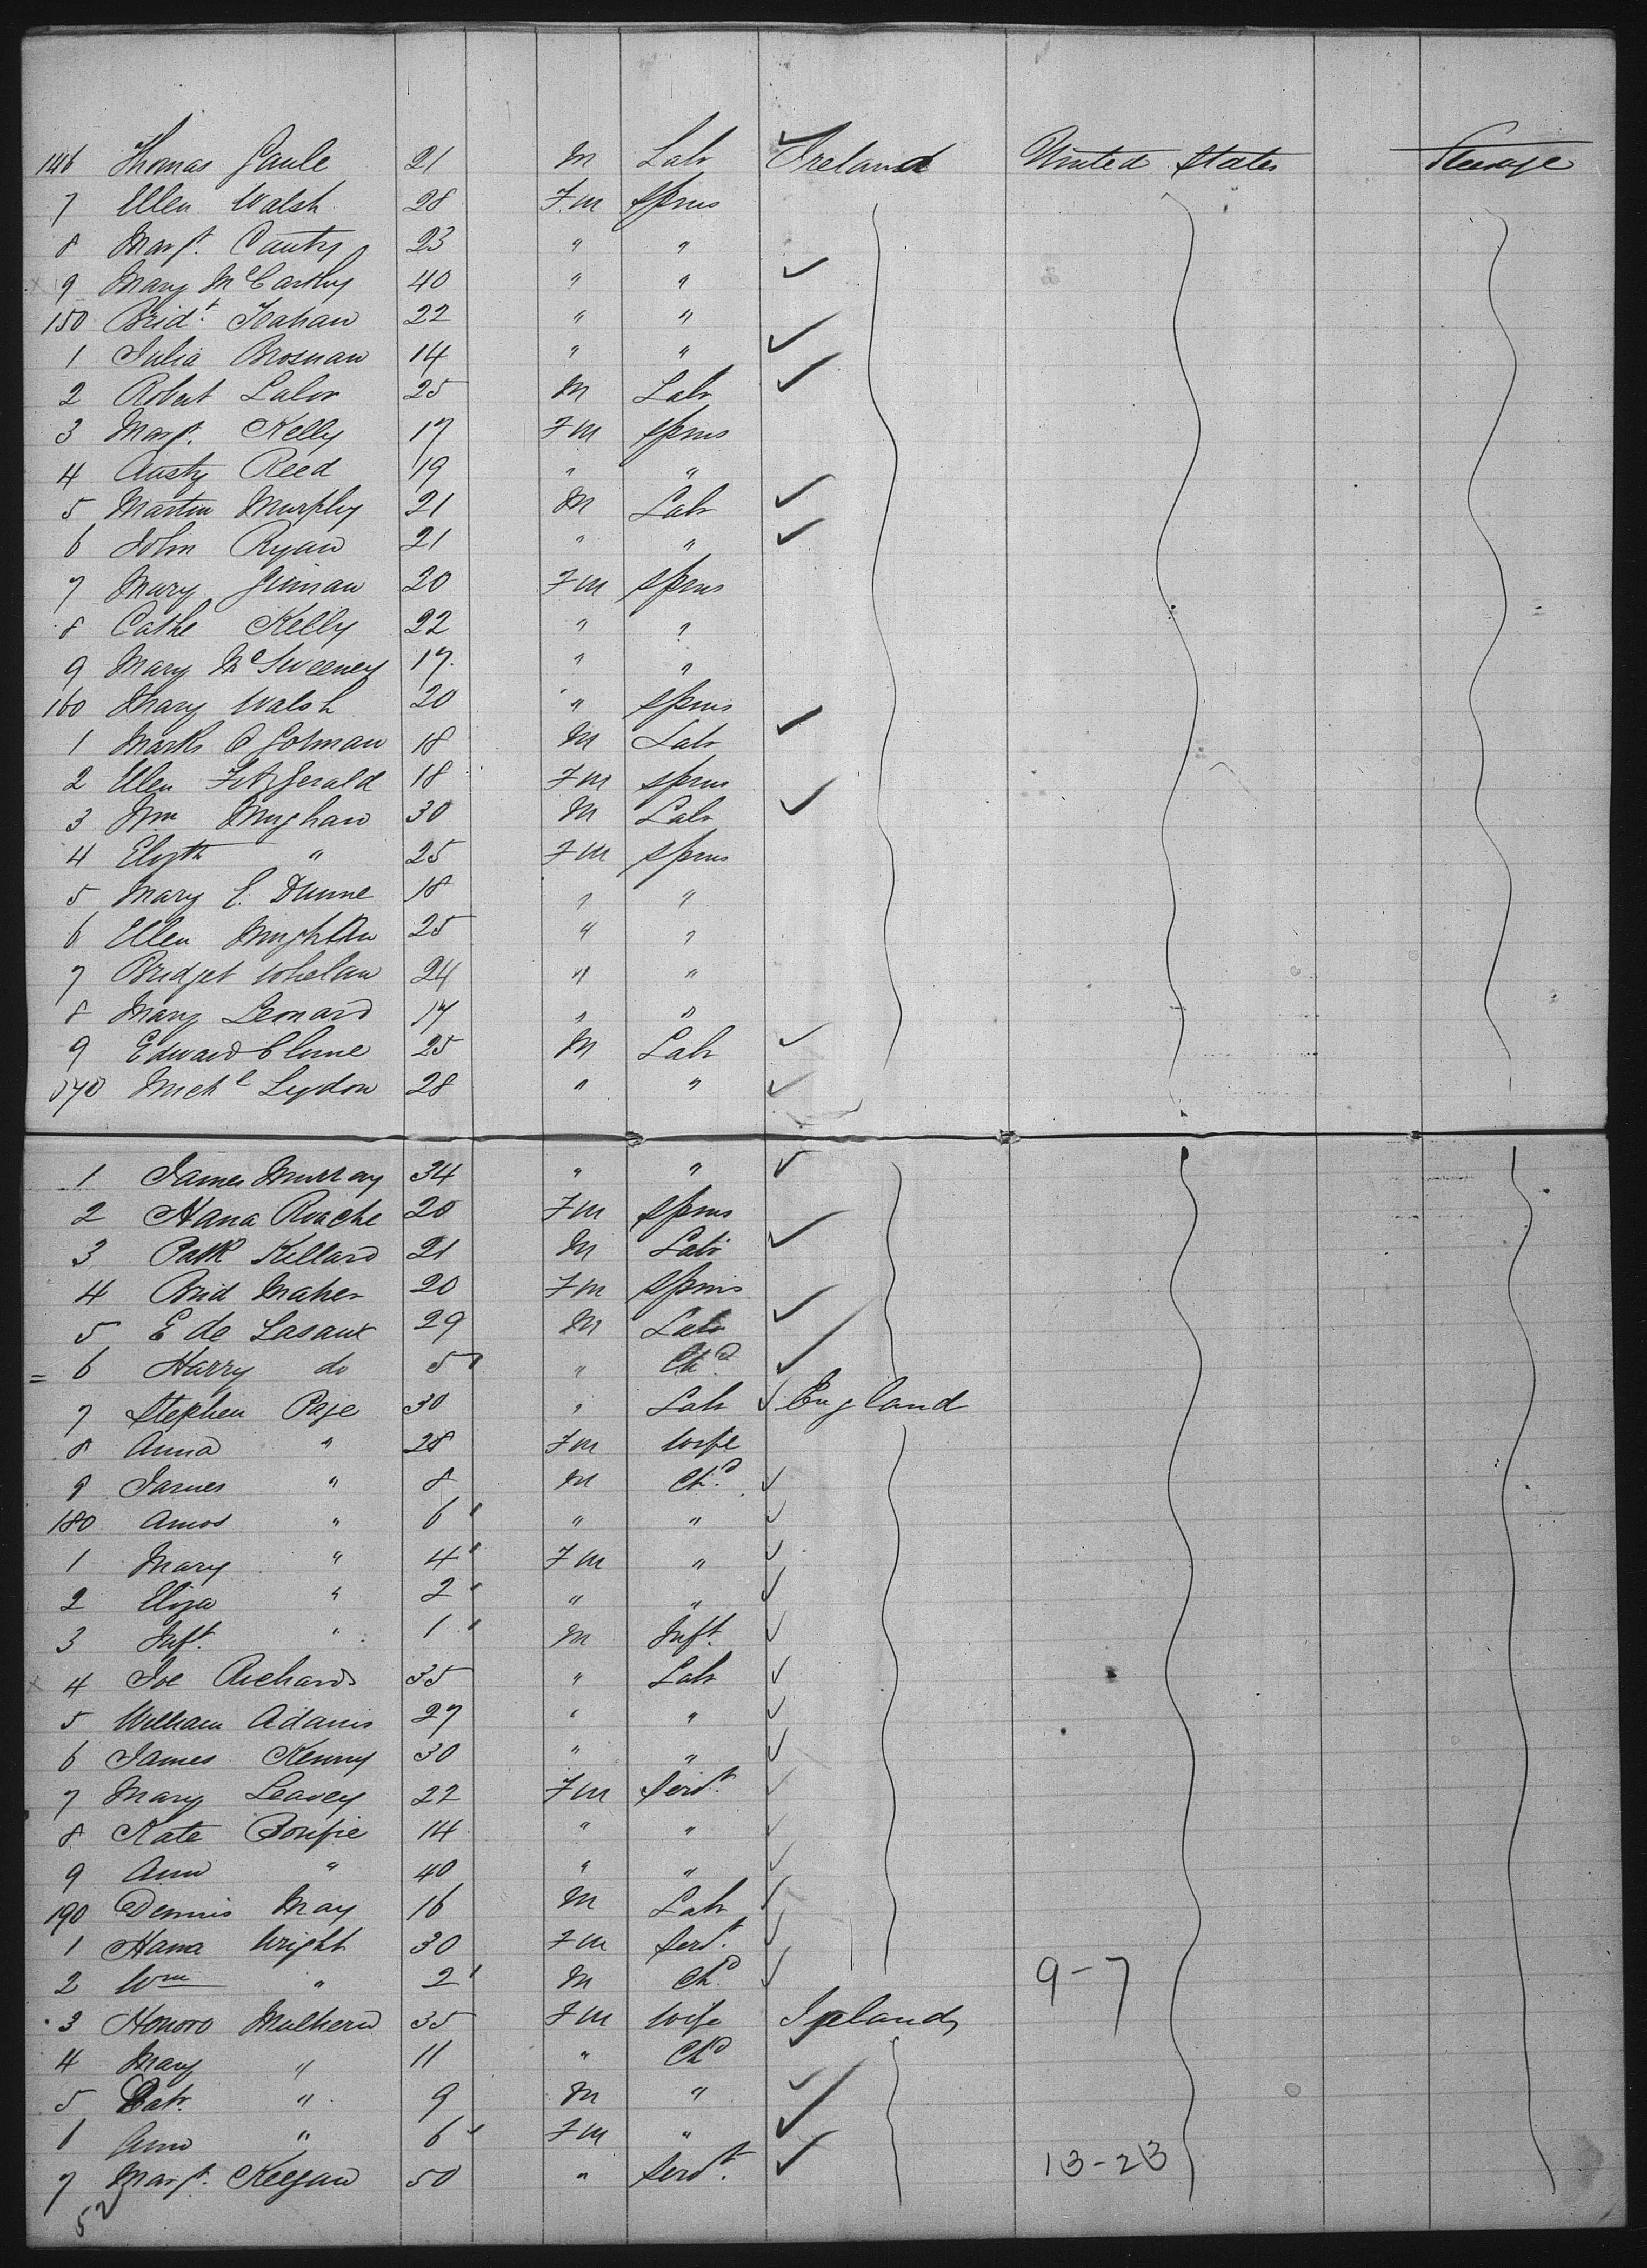 146 Thomas Gaule 21 M Labr Ireland United States Steerage
7 Ellen Walsh 28 Fm Spns
8 Margt. Canty 23 " "
9 Mary McCarthy 40 " "
150 Bridt. Teahan 22 " "
1 Julia Brosnan 14 " "
2 Robert Lalor 25 M Labr
3 Margt. Kelly 17 Fm Spns
4 Austy Reed 19 " "
5 Martin Murphy 21 M Labr
6 John Ryan 21 " "
7 Mary 20 Fm Spns
8 Cathe Kelly 22 " "
9 Mary McSweeney 17 " "
160 Mary Walsh 20 " Spns
1 Marks O Gorman 18 M Labr
2 Ellen Fitzgerald 18 Fm Spns
3 Wm 30 M Labr
4 Elizth " 25 Fm Spns
5 Mary E. Dunne 18 " "
6 Ellen 25 " "
7 Bridget Whelan 24 " "
8 Mary Leonard 17 " "
9 Edward Clune 25 M Labr
170 Michl Lydon 28 " "
1 James Murray 34 " "
2 Hana Roache 20 Fm Spns
3 Patk Killard 21 M Labr
4 Brid Maher 20 Fm Spns
5 E de Lasaux 29 M Labr
6 Harry do 5 " Chd
7 Stephen Page 30 " Labr England
8 Anna " 28 Fm Wife
9 James " 8 M Chd.
180 Amos " 6 " "
1 Mary " 4 Fm "
2 Eliza " 2 " "
3 Inft. " 1 M Inft.
4 Joe Richards 35 " Labr
5 William Adams 27 " "
6 James Kenny 30 " "
7 Mary Leavey 22 Fm Servt.
8 Kate 14 " "
9 Ann " 40 " "
190 Dennis May 16 M Labr
1 Hana Wright 30 Fm Servt.
2 Wm " 2 M Chd 9-7
3 Honoro Mulhern 35 Fm Wife Ireland
4 Mary " 11 " Chd
5 Patr. " 9 M "
6 Ann " 6 Fm "
7 Margt. Keegan 50 " Servt. 13-23
52